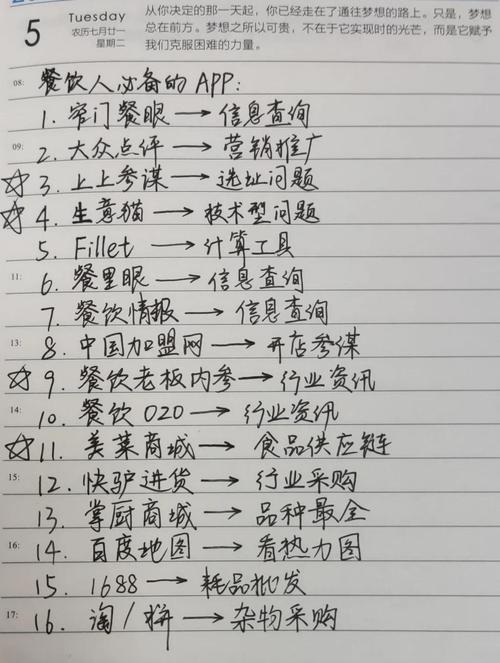 5
Tuesday
农历七月廿一
星期二
从你决定的那一天起，你已经走在了通往梦想的路上。只是，梦想
总在前方。梦想之所以可贵，不在于它实现时的光芒，而是它赋予
我们克服困难的力量。
08: 餐饮人必备的APP:
1. 窄门餐眼→信息查询
09: 2. 大众点评→营销推广
☆3. 上上参谋→选址问题
☆4. 生意猫→技术型问题
5. Fillet→计算工具
11: 6. 餐里眼→信息查询
7. 餐饮情报→信息查询
13: 8. 中国加盟网→开店参谋
☆9. 餐饮老板内参→行业资讯
14: 10. 餐饮O2O→行业资讯
☆11. 美菜商城→食品供应链
15: 12. 快驴进货→行业采购
13. 掌厨商城→品种最全
16: 14. 百度地图→看热力图
15. 1688→耗品批发
17: 16. 淘/拼→杂物采购